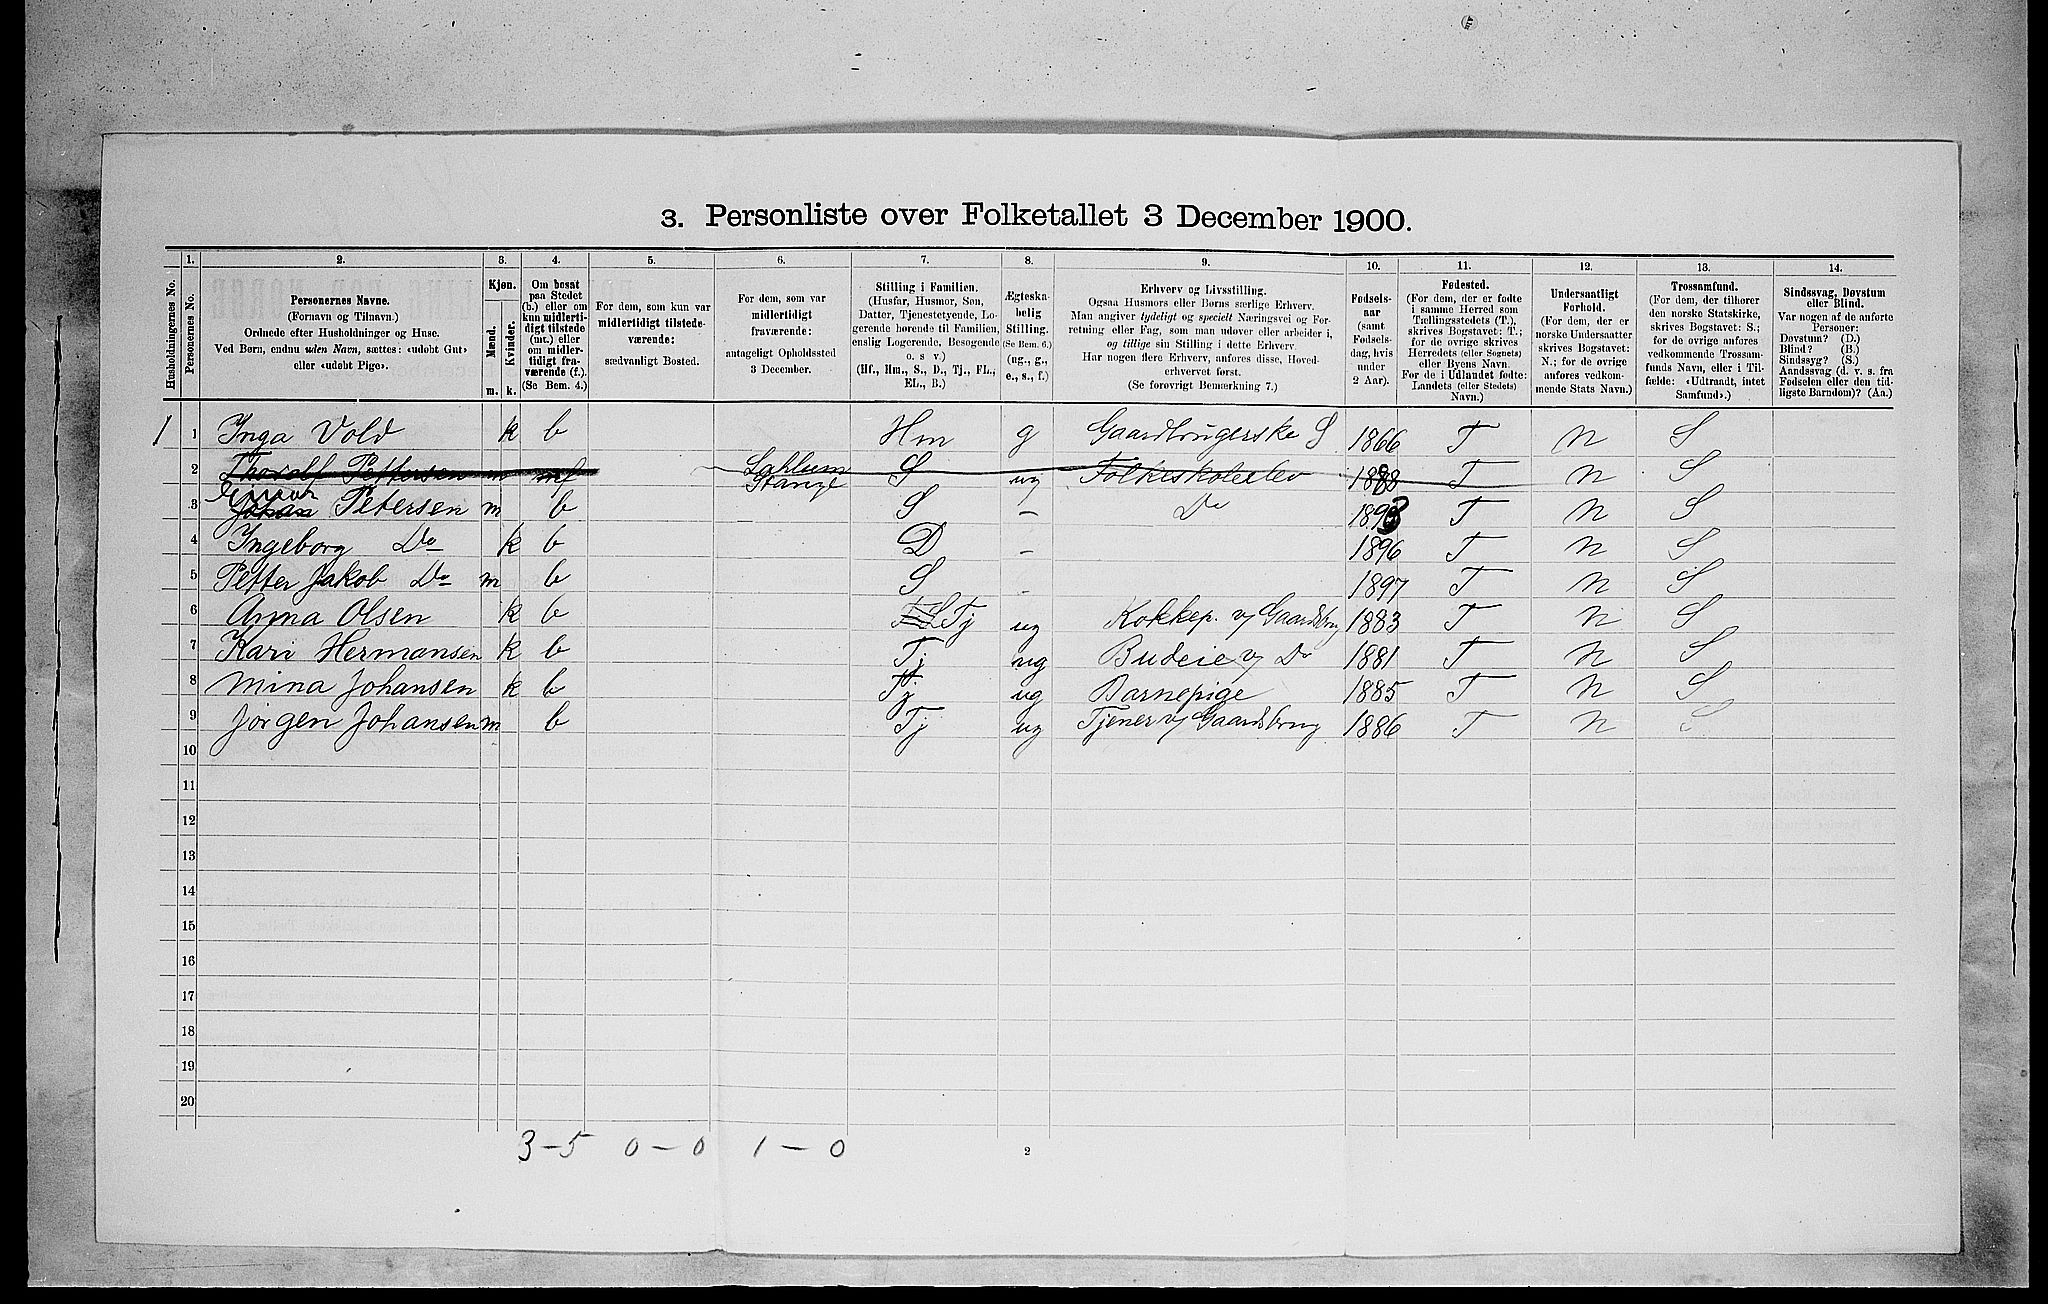 3. Personliste over Folketallet 3 December 1900.
Husholdningernes No.
1. Personernes No.
2. Personernes Navne. (Fornavn og Tilnavn.) Ordnede efter Husholdninger og Huse. Ved Børn, endnu uden Navn, sættes: «udøbt Gut» eller «udøbt Pige».
3. Kjøn. Mænd. m. Kvinder. k.
4. Om bosat paa Stedet (b.) eller om kun midlertidigt tilstede (mt.) eller om midlertidigt fraværende (f.). (Se Bem. 4.)
5. For dem, som kun var midlertidigt tilstedeværende: sædvanligt Bosted.
6. For dem, som var midlertidigt fraværende: antageligt Opholdssted 3 December.
7. Stilling i Familien. (Husfar, Husmor, Søn, Datter, Tjenestetyende, Logerende hørende til Familien, enslig Logerende, Besøgende o. s v.) (Hf., Hm., S., D., Tj., FL., EL., B.)
8. Ægteskabelig Stilling. (Se Bem. 6.) (ug., g., e., s., f.)
9. Erhverv og Livsstilling. Ogsaa Husmors eller Børns særlige Erhverv. Man angiver tydeligt og specielt Næringsvei og Forretning eller Fag, som man udøver eller arbeider i, og tillige sin Stilling i dette Erhverv. Har nogen flere Erhverv, anføres disse, Hovederhvervet først. (Se forøvrigt Bemærkning 7.)
10. Fødselsaar (samt Fødselsdag, hvis under 2 Aar).
11. Fødested. (For dem, der er fødte i samme Herred som Tællingsstedets (T.), skrives Bogstavet: T.; for de øvrige skrives Herredets (eller Sognets) eller Byens Navn. For de i Udlandet fødte: Landets (eller Stedets) Navn.)
12. Undersaatligt Forhold. (For dem, der er norske Undersaatter skrives Bogstavet: N.; for de øvrige anføres vedkommende Stats Navn.)
13. Trossamfund. (For dem, der tilhører den norske Statskirke, skrives Bogstavet: S.; for de øvrige anføres vedkommende Trossamfunds Navn, eller i Tilfælde: «Udtraadt, intet Samfund».)
14. Sindssvag, Døvstum eller Blind. Var nogen af de anførte Personer: Døvstum? (D.) Blind? (B.) Sindssyg? (S.) Aandssvag (d. v. s. fra Fødselen eller den tidligste Barndom)? (Aa.)
1 1 Inga Vold k b Hm g Gaardbrugerske S 1866 T N S
2 Thorolf Pettersen m mf Stange S ug Folkeskoleelev 1888 T N S
3 Einar Johan Petersen m b S – Do 1893 T N S
4 Ingeborg Do k b D – 1896 T N S
5 Petter Jakob Do m b S - 1897 T N S
6 Anna Olsen k b Tj ug Kokkep. v/ Gaardsbrug 1883 T N S
7 Kari Hermansen k b Tj ug Budeie v/ Do 1881 T N S
8 Mina Johansen k b Tj ug Barnepige 1885 T N S
9 Jørgen Johansen m b Tj ug Tjener v/ Gaardsbrug 1886 T N S
10
11
12
13
14
15
16
17
18
19
20
3 – 5 0 – 0 1 – 0
2